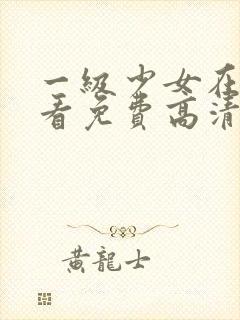 一級少女在
看免費高清
黃龍士